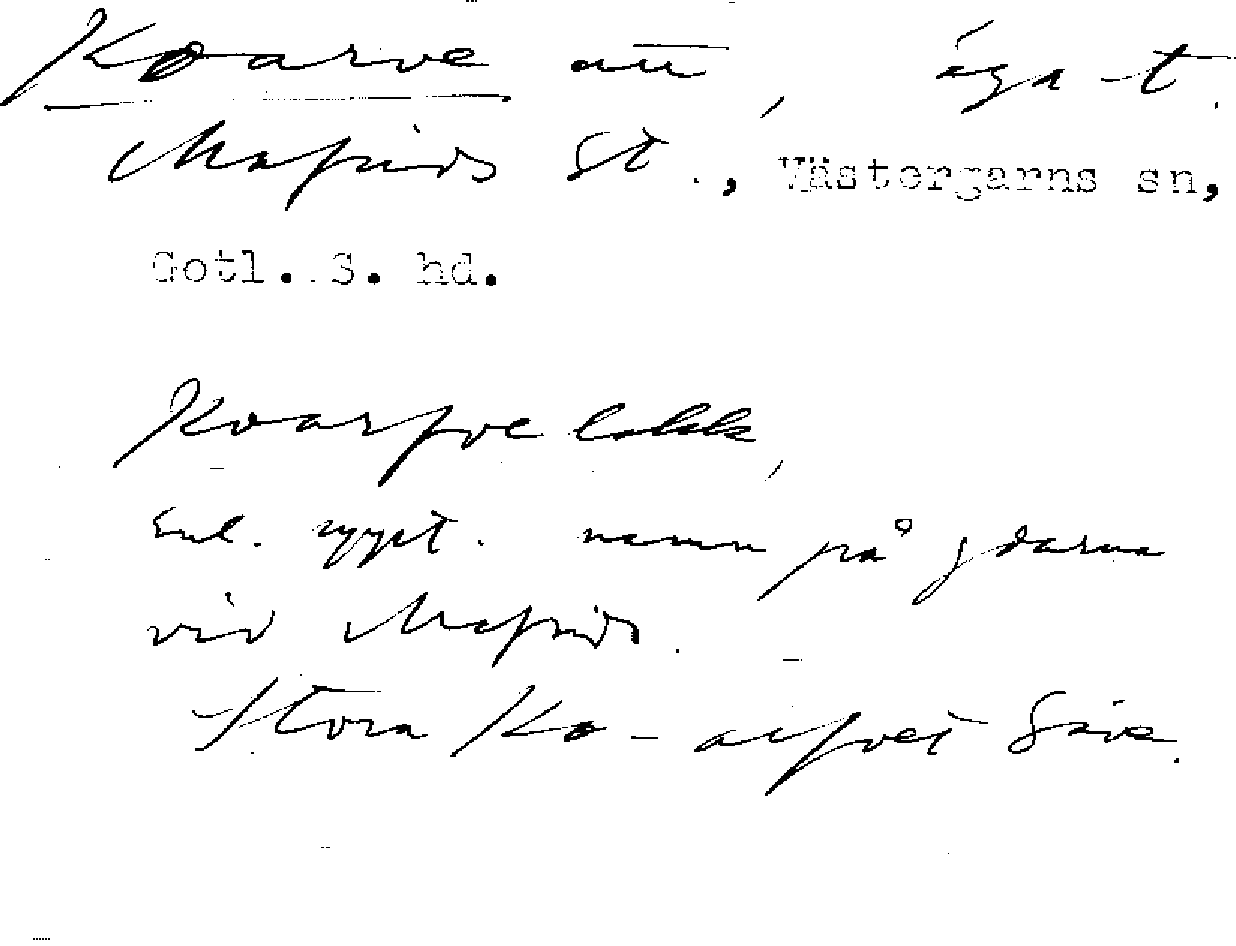 Koarve än, äga t.
Mafrids St., Västergarns sn,
Gotl. S. hd.
Koarfve
enl. uppt. namn på gdarna
vid Mafrids.
Stora Ko- arfvet Säve.